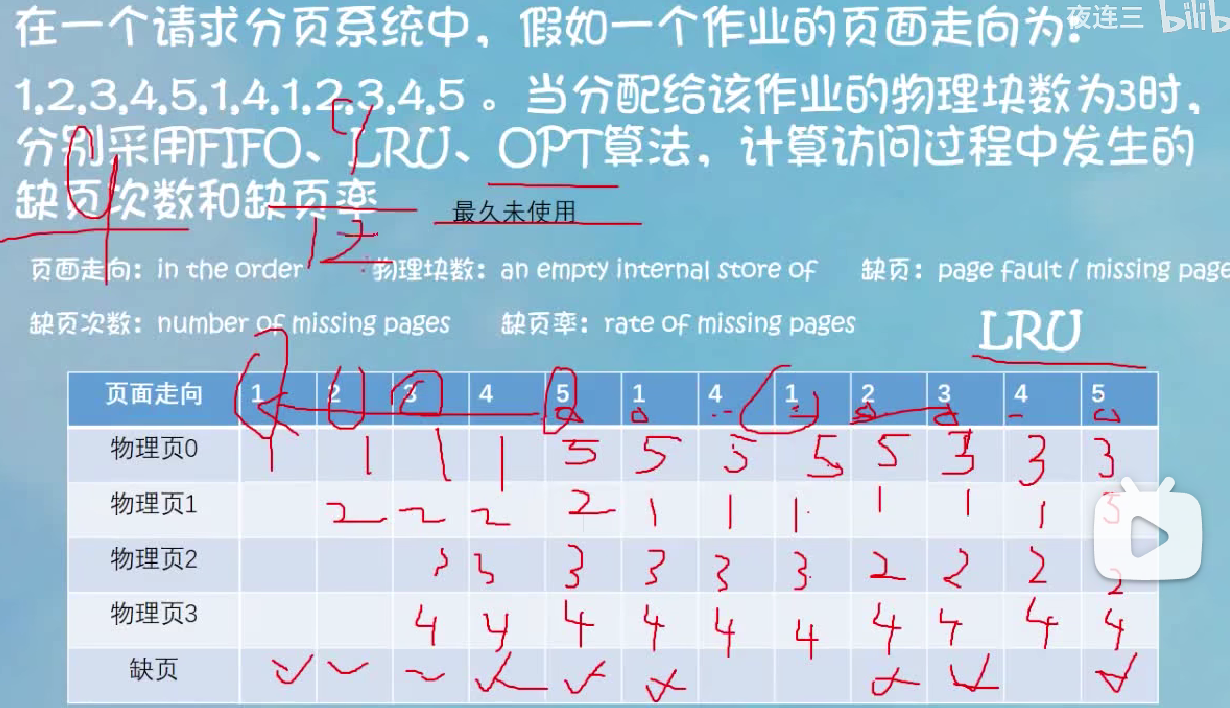 夜连三 bilib
在一个请求分页系统中，假如一个作业的页面走向为：
1,2,3,4,5,1,4,1,2,3,4,5 。当分配给该作业的物理块数为3时，
分别采用FIFO、LRU、OPT算法，计算访问过程中发生的
缺页次数和缺页率
最久未使用
9
12
页面走向：in the order 物理块数：an empty internal store of 缺页：page fault / missing page
缺页次数：number of missing pages 缺页率：rate of missing pages
LRU
页面走向 1 2 3 4 5 1 4 1 2 3 4 5
物理页0 1 1 1 1 5 5 5 5 5 3 3 3
物理页1 2 2 2 2 1 1 1 1 1 1 5
物理页2 3 3 3 3 3 3 2 2 2 2
物理页3 4 4 4 4 4 4 4 4 4 4
缺页